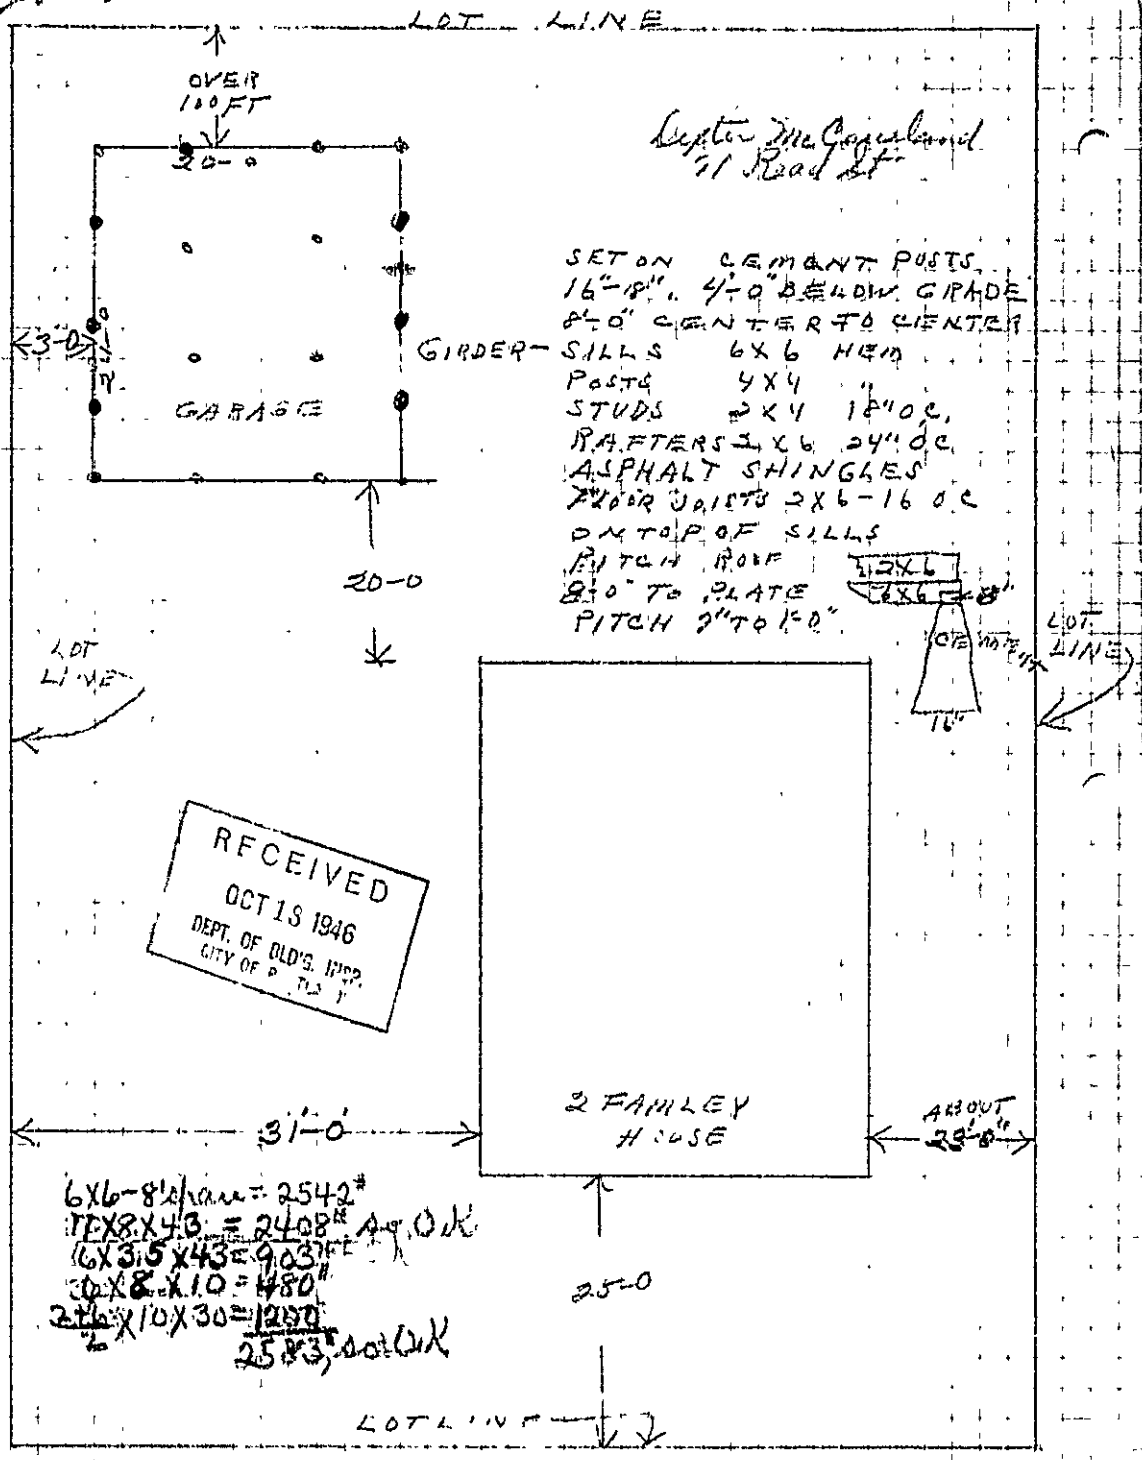 LOT LINE
OVER
100 FT
20-0
71 Read St
SET ON CEMANT POSTS
16"-18". 4'-0" BELOW GRADE
8'-0" CENTER TO CENTER
GIRDER- SILLS 6X6 HEM
POSTS 4X4 "
STUDS 2X4 18" O.C.
RAFTERS 2X6 24" O.C.
ASPHALT SHINGLES
FLOOR JOISTS 2X6-16 O.C
ON TOP OF SILLS
PITCH ROOF
8-0" TO PLATE
PITCH 7" TO 1-0"
3-0
GARAGE
20-0
2X6
6X6 8"
16"
LOT
LINE
LOT
LINE
RECEIVED
OCT 18 1946
DEPT. OF BLD'G. INSP.
CITY OF
2 FAMLEY
HOUSE
31'-0"
ABOUT
23'-0"
6X6-8' span = 2542#
7X8X43 = 2408# OK
6X3.5X43=903
6X8X10=480#
X10X30=1200
2583,# OK
25-0
LOT LINE